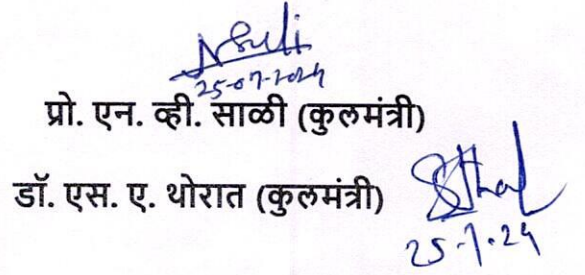 25-07-2024
प्रो. एन. व्ही. साळी (कुलमंत्री)
डॉ. एस. ए. थोरात (कुलमंत्री)
25-7-24